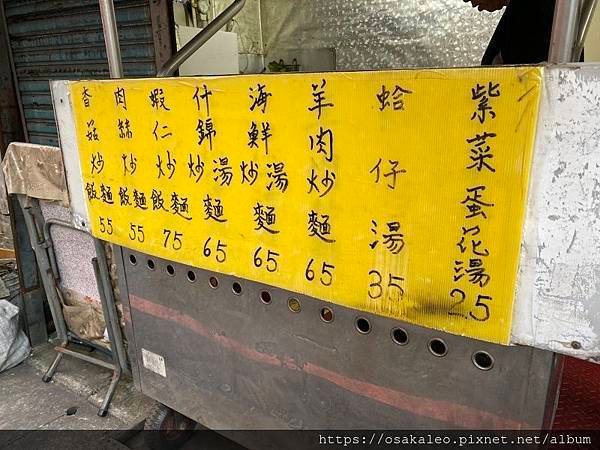 香菇炒飯麵 55
肉絲炒飯麵 55
蝦仁炒飯麵 75
什錦炒湯麵 65
海鮮炒湯麵 65
羊肉炒麵 65
蛤仔湯 35
紫菜蛋花湯 25
https://osakaleo.pixnet.net/album